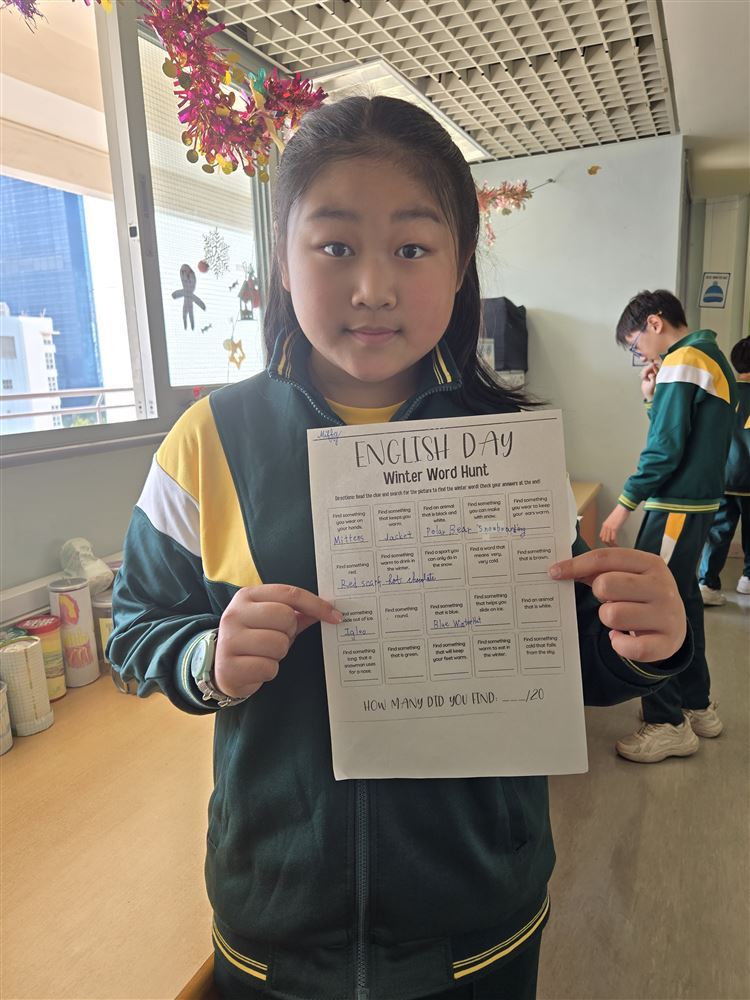 ENGLISH DAY
Winter Word Hunt
Directions: Read the clue and search for the picture to find the winter word! Check your answers at the end!
Find something you wear on your hands.
Mittens
Find something that keeps you warm.
Jacket
Find an animal that is black and white.
Polar Bear
Find something you can make with snow.
Snowboarding
Find something you wear to keep your ears warm.
Find something red.
Red scarf
Find something warm to drink in the winter.
hot chocolate
Find a sport you can only do in the snow.
Find a word that means very, very cold.
Find something that is brown.
Find something made out of ice.
Igloo
Find something round.
Find something that is blue.
Blue Winter Hat
Find something that helps you slide on ice.
Find an animal that is white.
Find something long that a snowman uses for a nose.
Find something that is green.
Find something that will keep your feet warm.
Find something warm to eat in the winter.
Find something cold that falls from the sky.
HOW MANY DID YOU FIND: ___/20